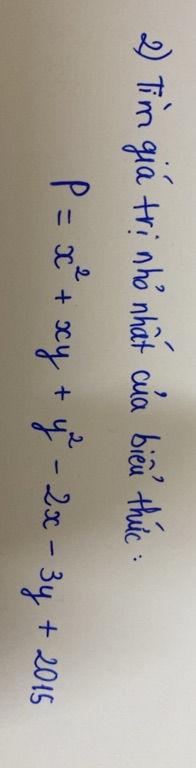 2) Tìm giá trị nhỏ nhất của biểu thức:
P = x² + xy + y² - 2x - 3y + 2015